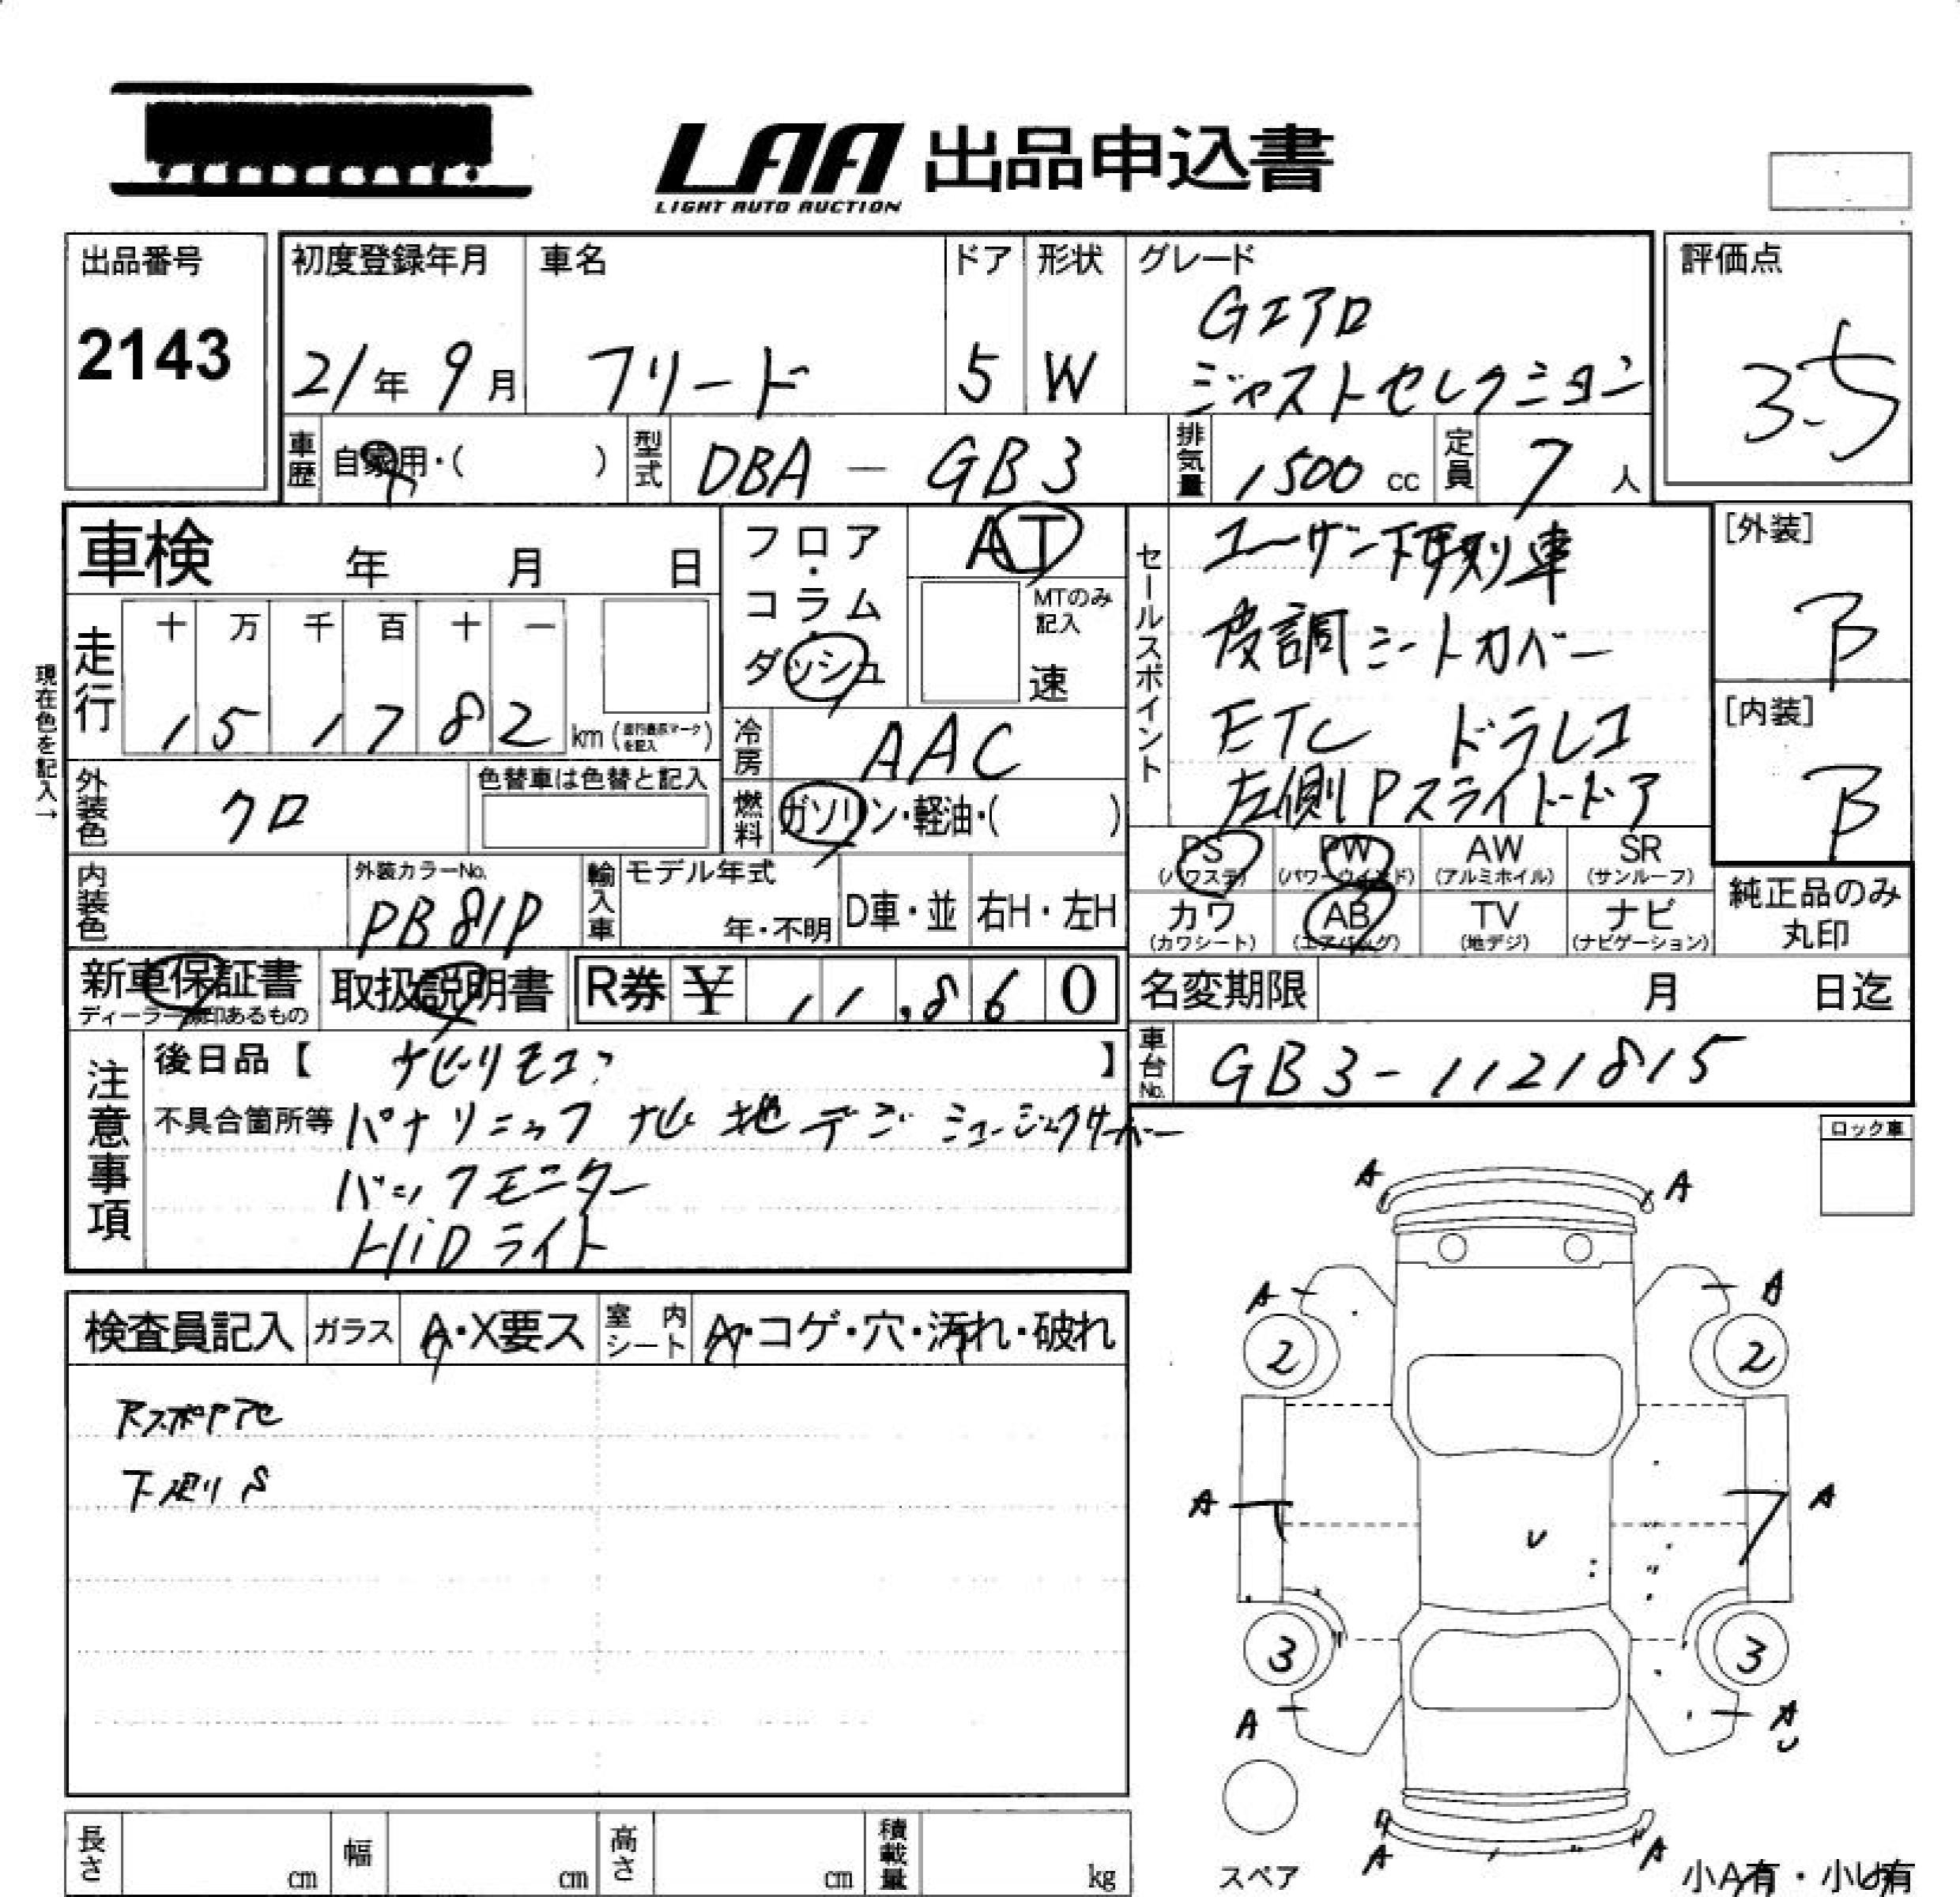 LAA 出品申込書
LIGHT AUTO AUCTION
出品番号
2143
初度登録年月
21年 9月
車名
フリード
ドア
5
形状
W
グレード
Gエアロ
ジャストセレクション
評価点
3.5
車歴
自家用・( )
型式
DBA - GB3
排気量
1500 cc
定員
7 人
車検 年 月 日
フロア・
コラム・
ダッシュ
AT
MTのみ
記入
速
走行
十 万 千 百 十 一
1 5 1 7 8 2 km (走行表示マークを記入)
現在色を記入→
冷房
AAC
外装色
クロ
色替車は色替と記入
燃料
ガソリン・軽油・( )
セールスポイント
ユーザー下取り車
皮調シートカバー
ETC ドラレコ
左側Pスライドドア
[外装]
B
[内装]
B
PS
(パワステ)
PW
(パワーウインド)
AW
(アルミホイル)
SR
(サンルーフ)
カワ
(カワシート)
AB
(エアバッグ)
TV
(地デジ)
ナビ
(ナビゲーション)
純正品のみ
丸印
内装色
外装カラーNo.
PB81P
輸入車
モデル年式
年・不明
D車・並
右H・左H
新車保証書
ディーラー検印あるもの
取扱説明書
R券 ¥ 11,860
名変期限 月 日迄
車台No.
GB3-1121815
注意事項
後日品【 ナビリモコン 】
不具合箇所等 パナソニック ナビ 地デジ ミュージックサーバー
バックモニター
HiDライト
ロック車
検査員記入
ガラス
A・X要ス
室内シート
A・コゲ・穴・汚れ・破れ
下廻りS
A
A
A
A
2
2
A
A
3
3
A
A
U
U
A
A
スペア
小A有・小U有
長さ
cm
幅
cm
高さ
cm
積載量
kg